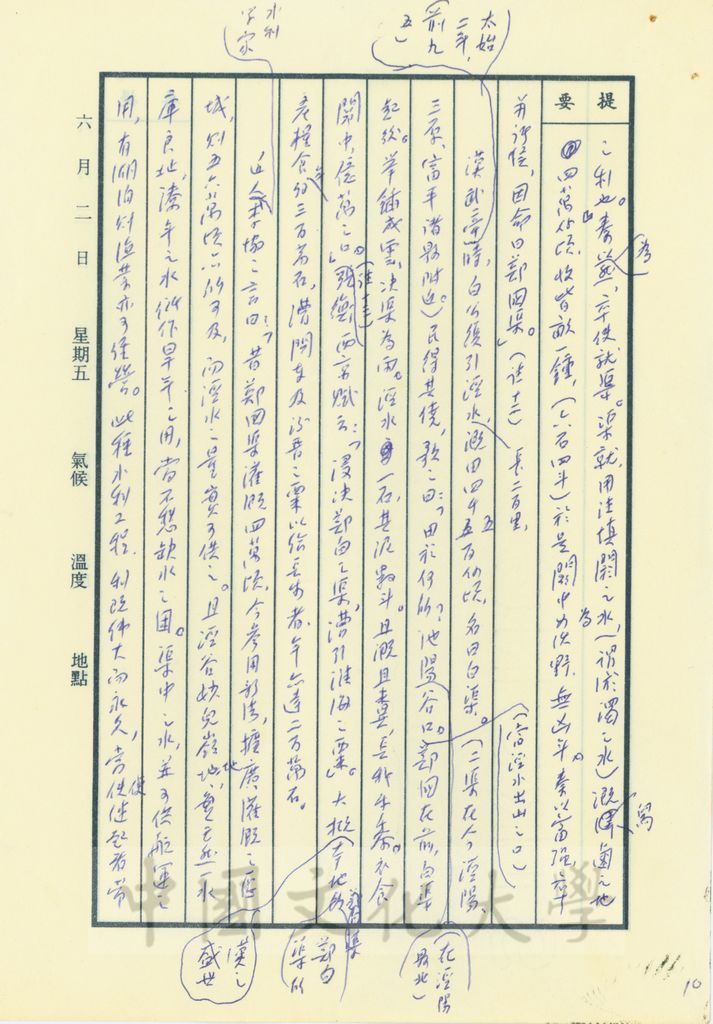 提要
之利也。秦以為然,卒使就渠。渠就,用注填閼之水,(謂淤濁之水)溉舃鹵之地
四萬餘頃,收皆畝一鍾,(六石四斗)於是關中為沃野,無凶年。秦以富強,卒
并諸侯,因命曰鄭國渠。」(註十二)長三百里,
漢武帝時,白公復引涇水,溉田四千五百餘頃,名曰白渠。(二渠在今涇陽,
太始二年,(前九五)
三原,富平諸縣附近)民得其饒,歌之曰:「田於何所?池陽谷口。鄭國在前,白渠
(當涇水出山之口)
(在涇陽縣北)
起後。舉鍤成雲,決渠為雨。涇水一石,其泥數斗。且溉且糞,長我禾黍。衣食
關中,億萬之口。」(註十三)張衡西京賦云:「浸決鄭白之渠,漕引淮海之粟。」大概
漢之盛世
產糧食約三百萬石,漕關東及汾晉之粟以給長安者,年亦達二百萬石。
近人李協之言曰:「昔鄭國渠灌溉四萬頃,今參用新法,擴廣灌溉之區
水利學家
域,則五六萬頃亦所可及,而涇水之量實可供之。且涇谷妙兒嶺地,實天然一水
庫良地,潦年之水儲作旱年之用,當不愁缺水之困。渠中之水,並可供航運之
用,有湖泊則漁業亦可經營。此種水利工程,利既偉大而永久,當使繼起者
六月二日 星期五 氣候 溫度 地點
中國文化大學
10